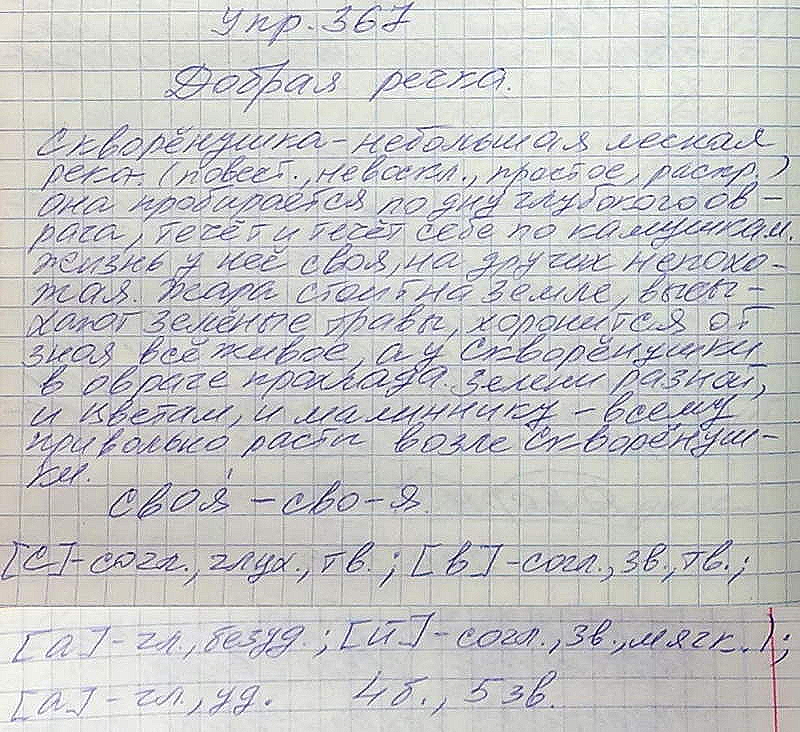 Упр. 367
Добрая речка.
Скворёнушка - небольшая лесная
река. (повест., невоскл., простое, распр.)
Она пробирается по дну глубокого ов-
рага, течёт и течёт себе по камушкам.
Жизнь у неё своя, на других непохо-
жая. Жара стоит на земле, высы-
хают зелёные травы, хоронится от
зноя всё живое, а у Скворёнушки
в овраге прохлада. Зелени разной,
и цветам, и малиннику - всему
привольно расти возле Скворёнуш-
ки.
своя́ - сво-я.
[с]-согл., глух., тв.; [в]-согл., зв., тв.;
[а]-гл., безуд.; [й]-согл., зв., мягк.);
[а]-гл., уд. 4б., 5зв.